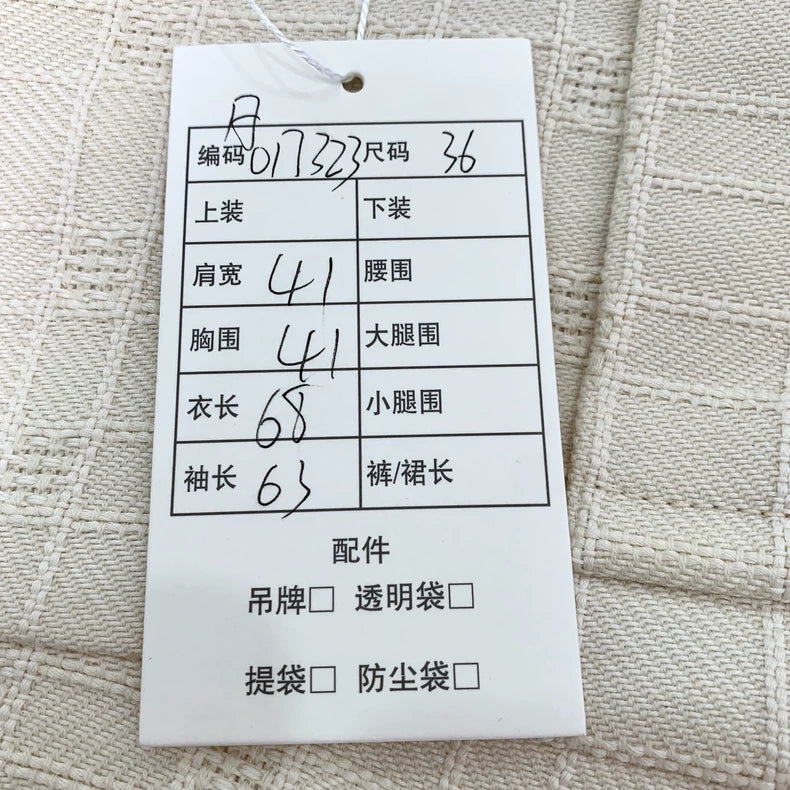 月
编码 017323 尺码 36
上装 下装
肩宽 41 腰围
胸围 41 大腿围
衣长 68 小腿围
袖长 63 裤/裙长
配件
吊牌□ 透明袋□
提袋□ 防尘袋□